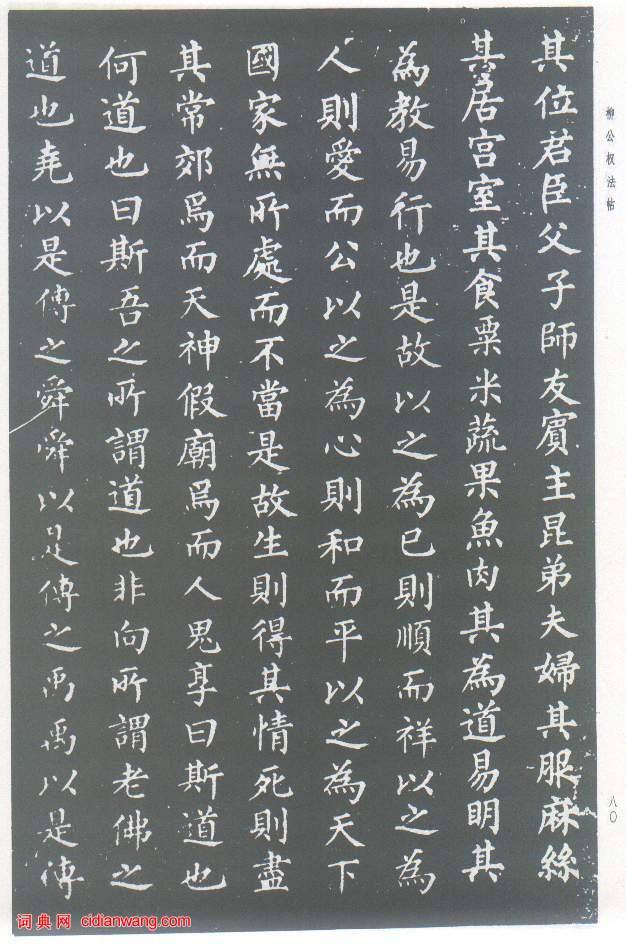 柳公权法帖
其位君臣父子師友賓主昆弟夫婦其服麻絲
其居宫室其食粟米蔬果魚肉其為道易明其
為教易行也是故以之為已則順而祥以之為
人則愛而公以之為心則和而平以之為天下
國家無所處而不當是故生則得其情死則盡
其常郊焉而天神假廟焉而人鬼享曰斯道也
何道也曰斯吾之所謂道也非向所謂老佛之
道也堯以是傳之舜舜以是傳之禹禹以是傳
八〇
词典网 cidianwang.com